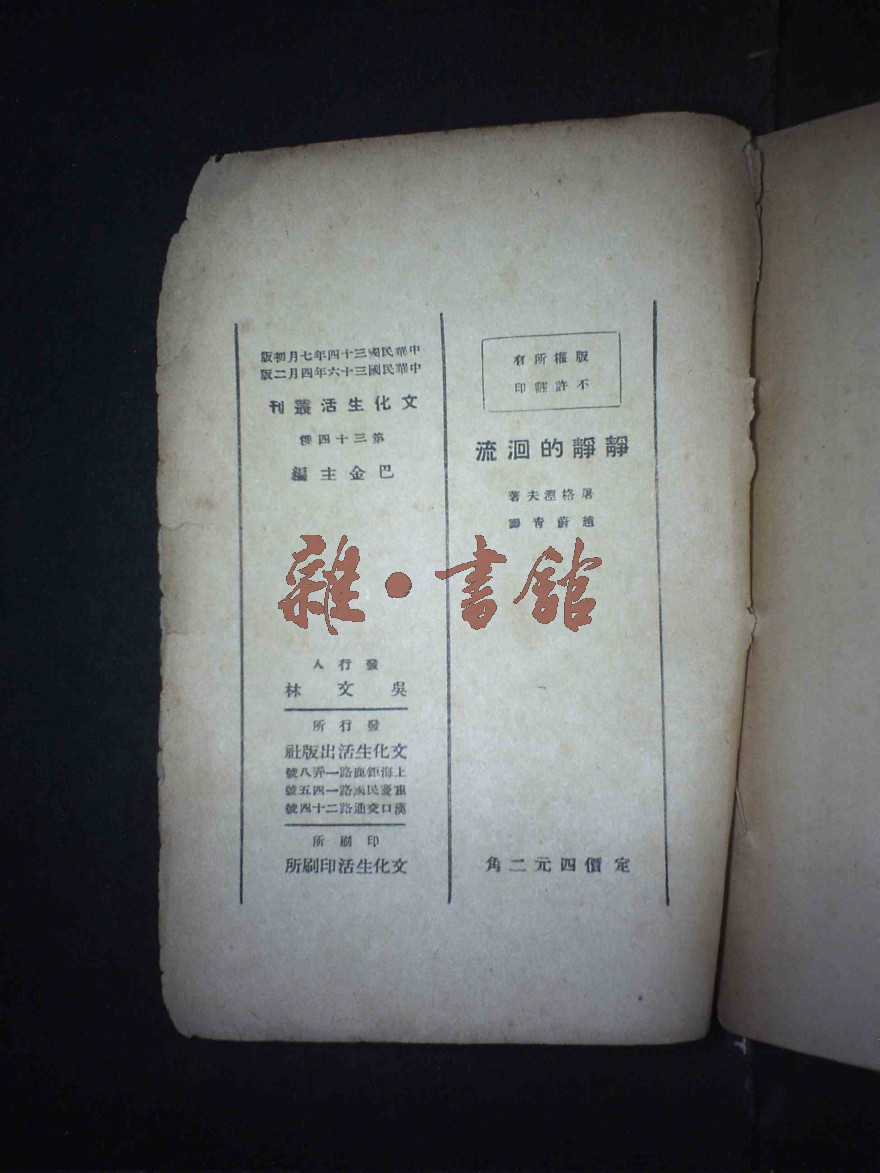 版權所有
不許翻印
靜靜的洄流
屠格湼夫著
趙蔚青譯
定價四元二角
中華民國三十四年七月初版
中華民國三十六年四月二版
文化生活叢刊
第三十四種
巴金主編
發行人
吳文林
發行所
文化生活出版社
上海鉅鹿路一弄八號
重慶民國路一四五號
漢口交通路二十四號
印刷所
文化生活印刷所
雜·書館